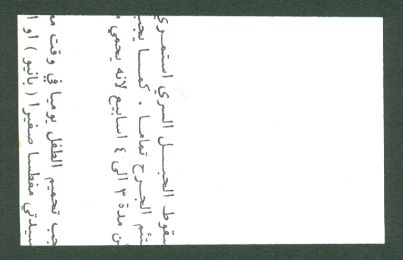 سقوط الحبل السري استمري
تئم الجرح تماما . كما يجب
ن مدة ٣ الى ٤ اسابيع لانه يحمي
جب تحميم الطفل يوميا في وقت مع
سيدتي مغطسا صغيرا ( بانيو ) او ا